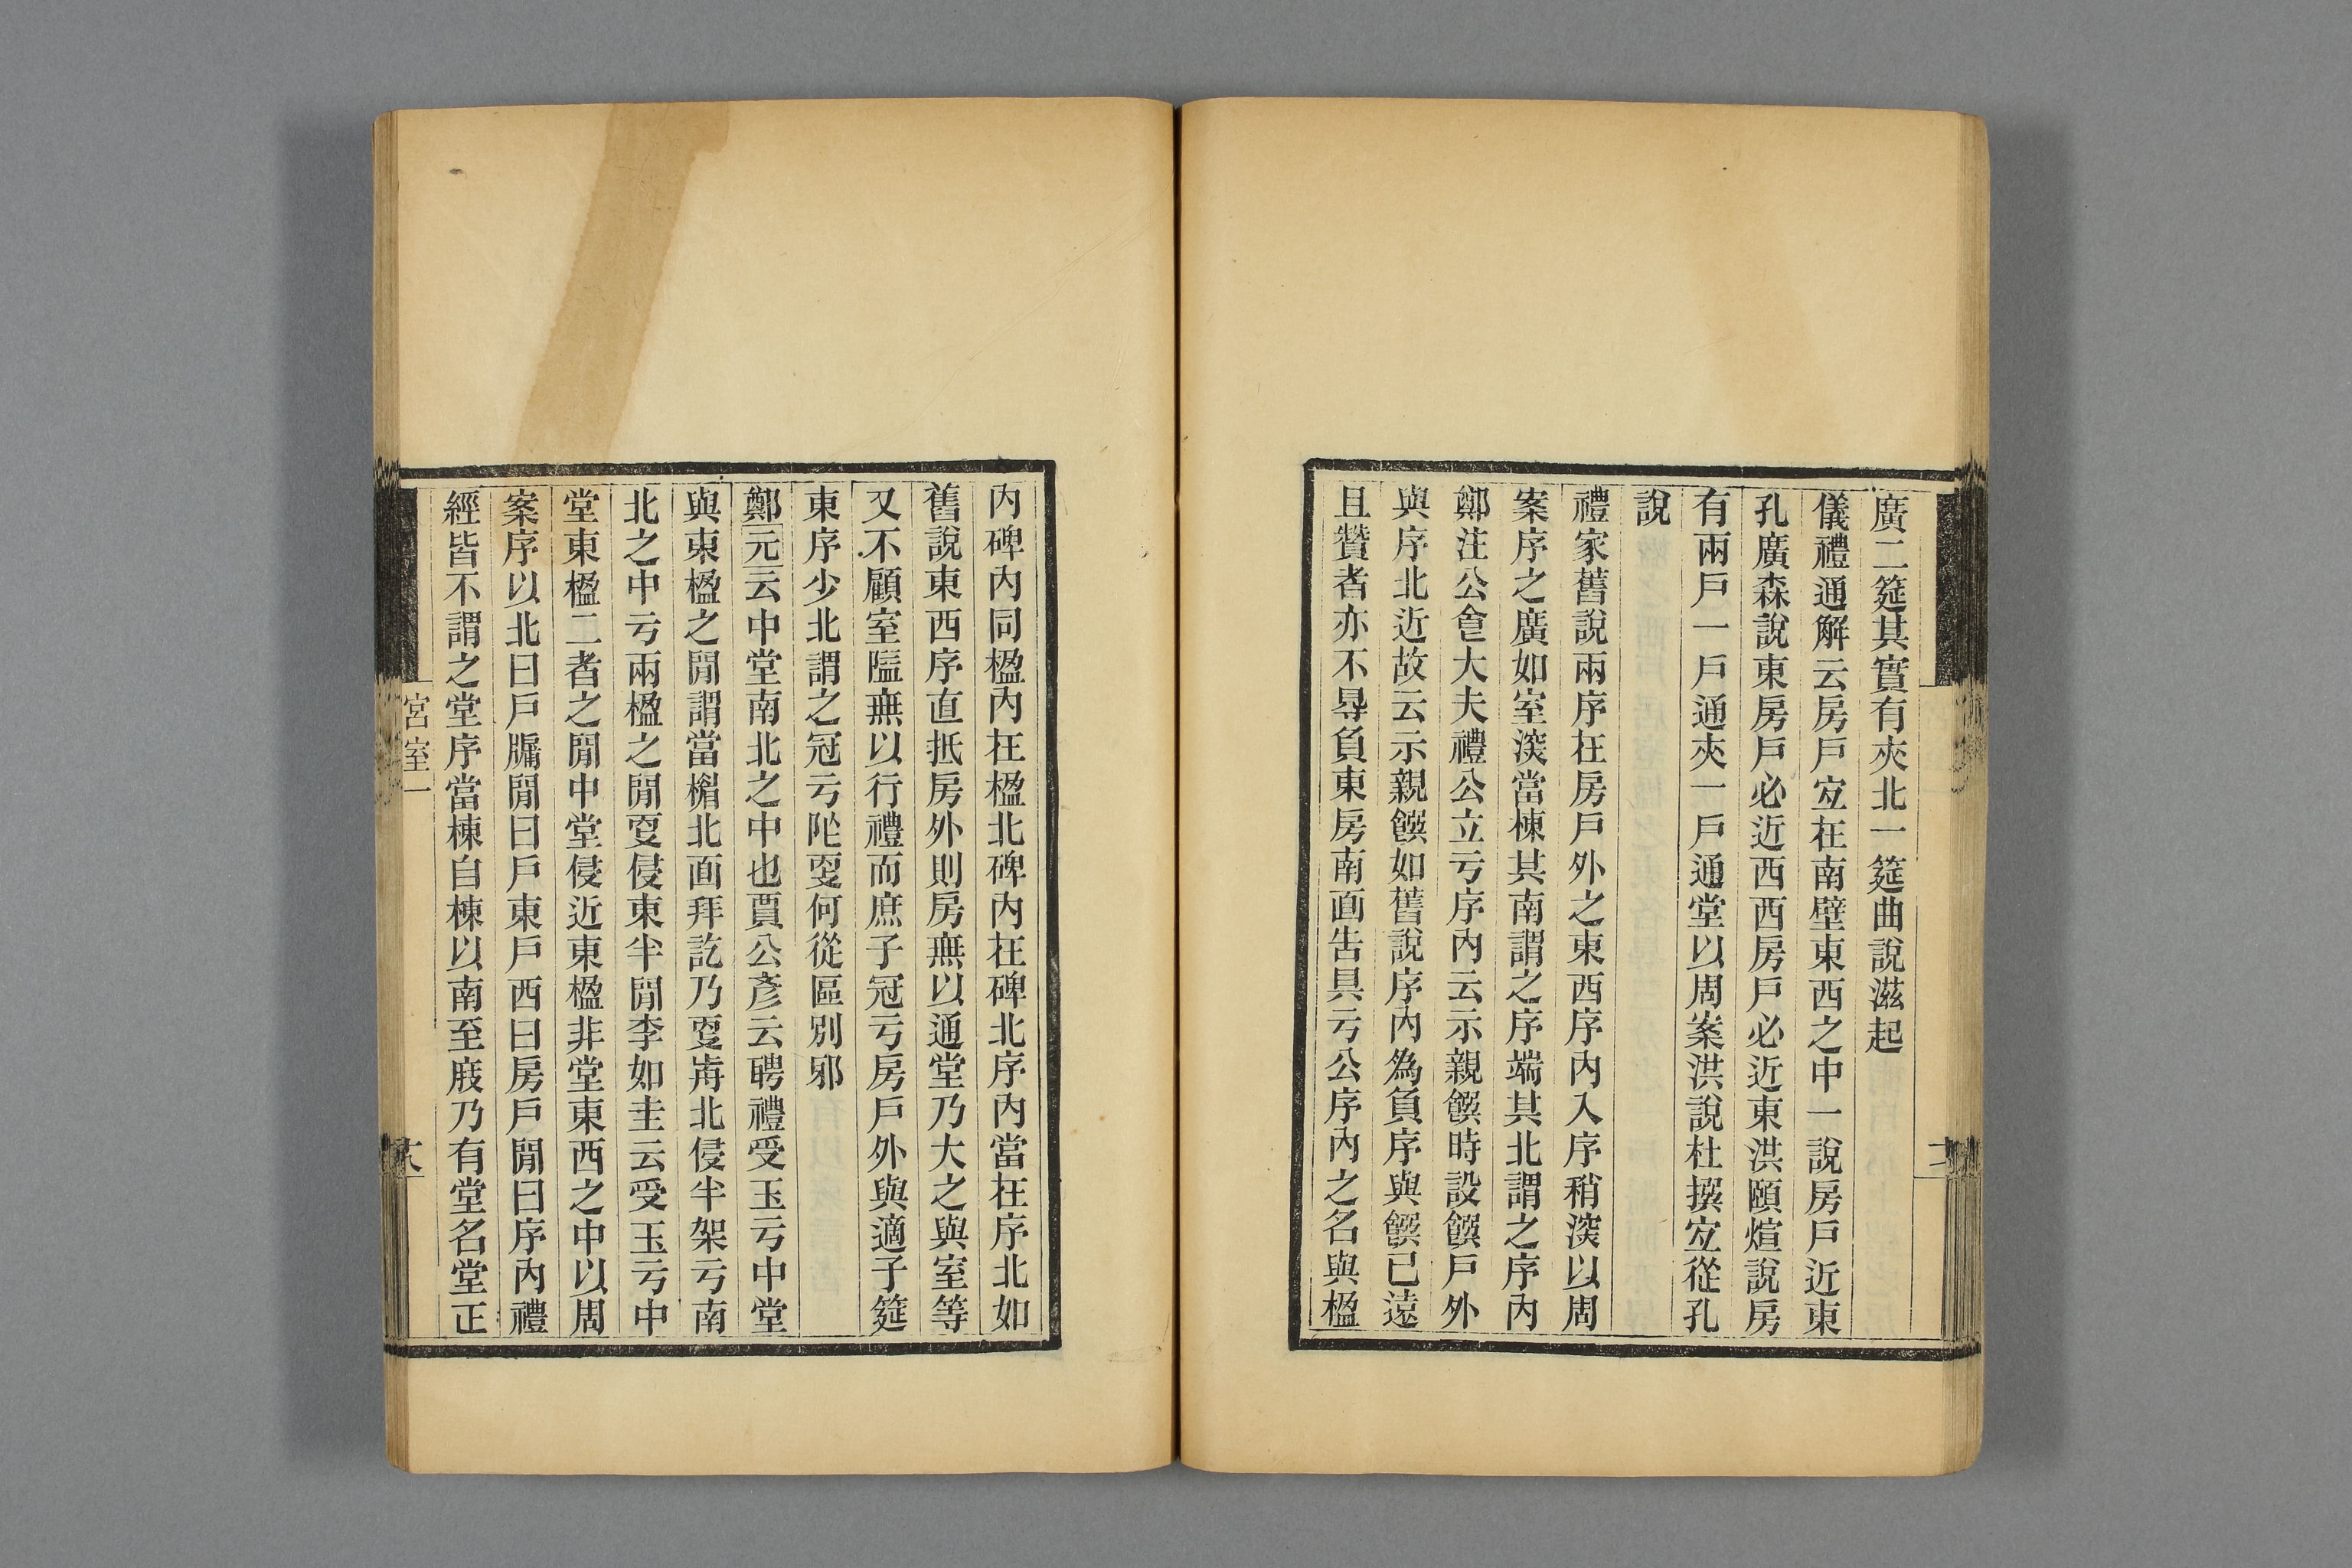 廣二筵其實有夾北一筵曲說滋起
儀禮通解云房戶宐在南壁東西之中一說房戶近東
孔廣森說東房戶必近西西房戶必近東洪頤煊說房
有兩戶一戶通夾一戶通堂以周案洪說杜撰宐從孔
說
禮家舊說兩序在房戶外之東西序內入序稍淡以周
案序之廣如室淡當棟其南謂之序端其北謂之序內
鄭注公㑹大夫禮公立亏序內云示親饌時設饌戶外
與序北近故云示親饌如舊說序內為負序與饌已遠
且贊者亦不㝵負東房南面告具亏公序內之名與楹
內碑內同楹內在楹北碑內在碑北序內當在序北如
舊說東西序直抵房外則房無以通堂乃大之與室等
又不顧室隘無以行禮而庶子冠亏房戶外與適子筵
東序少北謂之冠亏阼㪅何從區別邪
鄭元云中堂南北之中也賈公彥云聘禮受玉亏中堂
與東楹之閒謂當楣北面拜訖乃㪅歬北侵半架亏南
北之中亏兩楹之閒㪅侵東半閒李如圭云受玉亏中
堂東楹二者之閒中堂侵近東楹非堂東西之中以周
案序以北曰戶牖閒曰戶東戶西曰房戶閒曰序內禮
經皆不謂之堂序當棟自棟以南至庪乃有堂名堂正
宮室一
十八